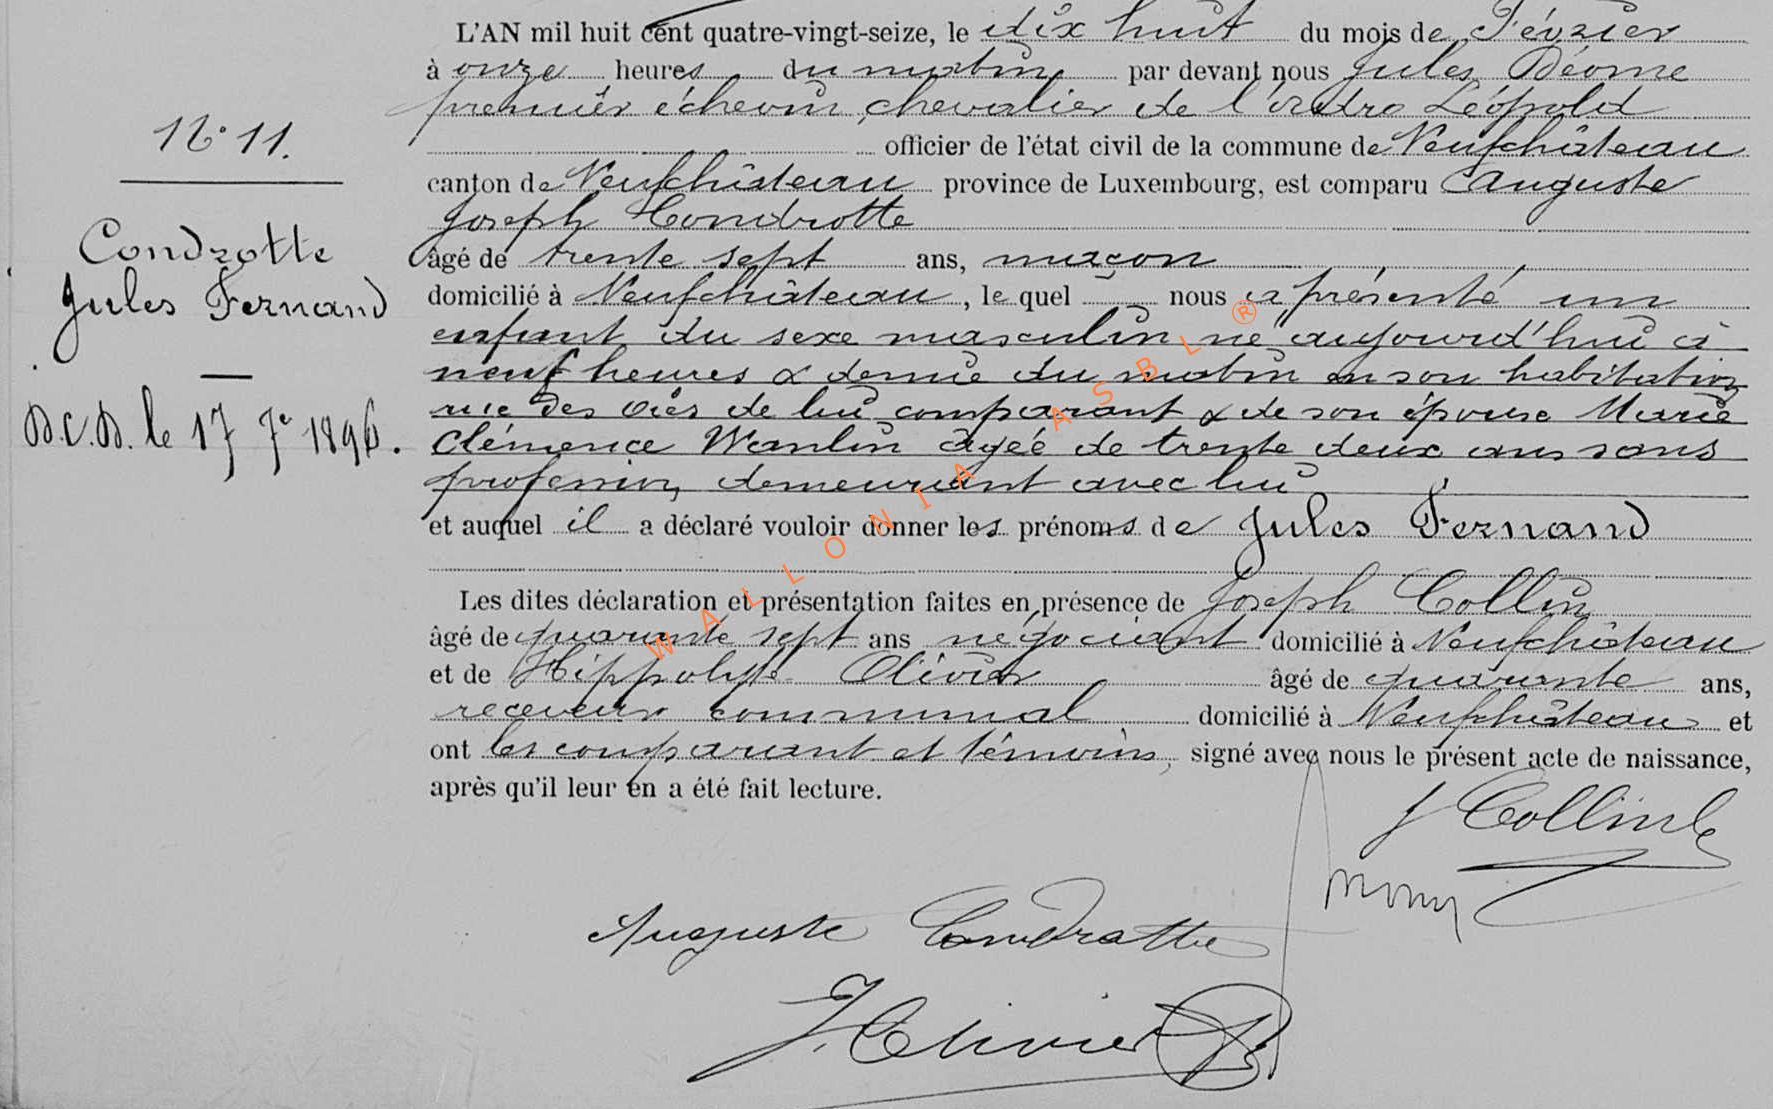 N° 11.
Condrotte
Jules Fernand
D.C.D. le 17 7e 1896.
L'AN mil huit cent quatre-vingt-seize, le dix huit du mois de Février
à onze heures du matin par devant nous Jules Déome
premier échevin, chevalier de l'ordre Léopold
officier de l'état civil de la commune de Neufchâteau
canton de Neufchâteau province de Luxembourg, est comparu Auguste
Joseph Condrotte
âgé de trente sept ans, maçon
domicilié à Neufchâteau, le quel nous a présenté un
enfant du sexe masculin né aujourd'hui à
neuf heures & demie du matin en son habitation
rue des de lui comparant & de son épouse Marie
Clémence Wanlin âgée de trente deux ans sans
profession, demeurant avec lui
et auquel il a déclaré vouloir donner les prénoms de Jules Fernand
Les dites déclaration et présentation faites en présence de Joseph Collin
âgé de quarante sept ans négociant domicilié à Neufchâteau
et de Hippolyte Olivier âgé de quarante ans,
receveur communal domicilié à Neufchâteau et
ont les comparant et témoins, signé avec nous le présent acte de naissance,
après qu'il leur en a été fait lecture.
J Collin
Auguste Condrotte
H. Olivier
WALLONIA ASBL ®